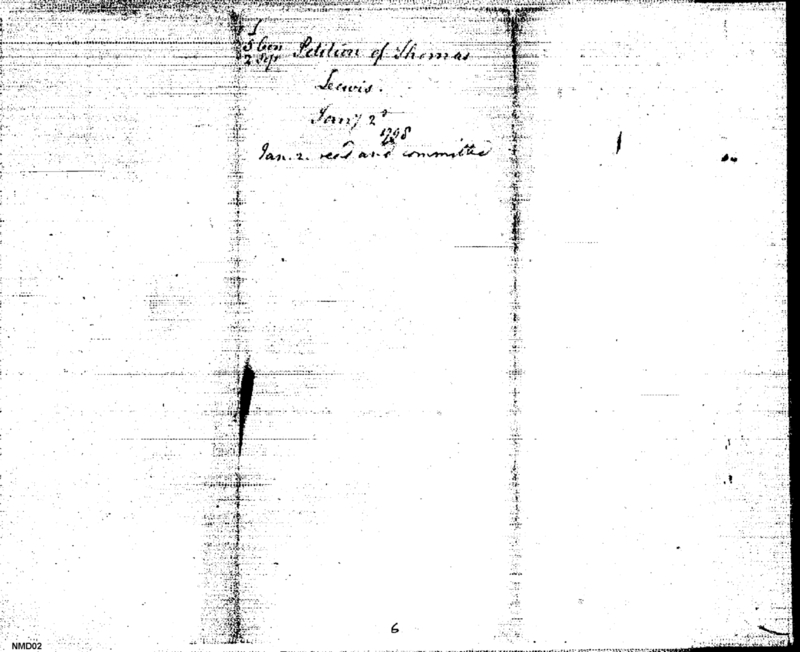 1
5 Con
2 Ses Petition of Thomas
Lewis.
Jany 2d
1798
Jan. 2. read and committed
6
NMD02